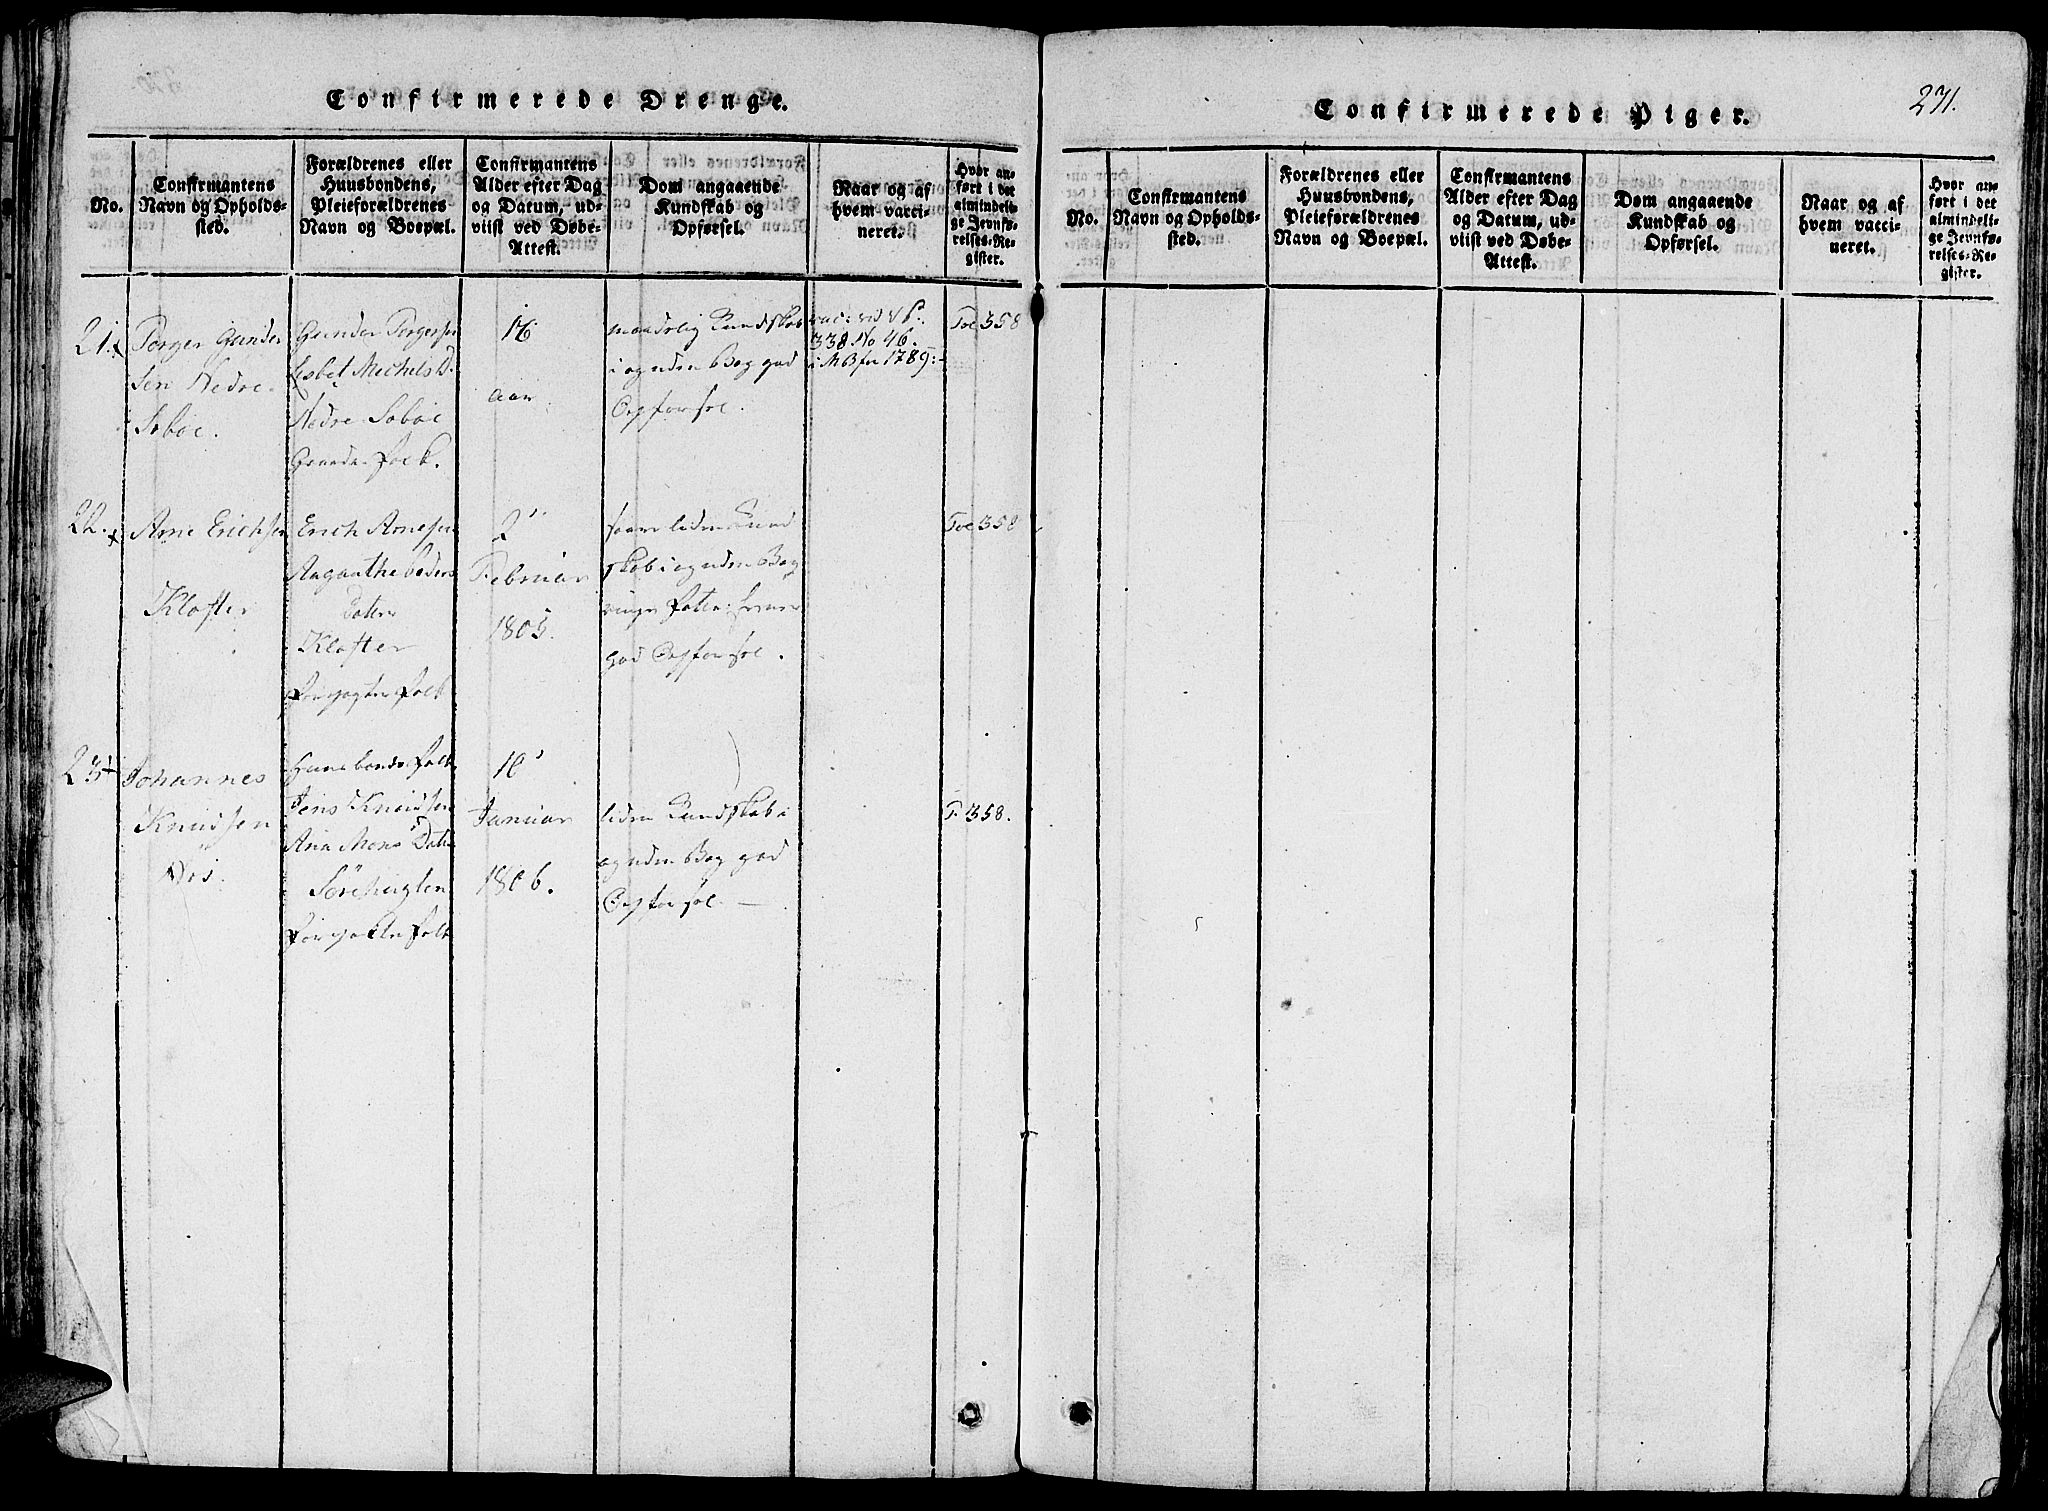 Confirmerede Drenge.
No.
Confirmantens
Navn og Opholds-
sted.
Forældrenes eller
Huusbondens,
Pleieforældrenes
Navn og Boepæl.
Confirmantens
Alder efter Dag
og Datum, ud-
viist ved Døbe-
Attest.
Dom angaaende
Kundskab og
Opførsel.
Naar og af
hvem vacci-
neret.
Hvor an-
ført i det
almindeli-
ge Jevnfø-
relses-Re-
gister.
21.
Torger Gunder
sen Nedre
Soboe.
Gunder Torgersen
Lisbet Michels D.
Nedre Soboe
Gaards folk.
16
aar
maadelig Kundskab
i og uden Bog god
Opførsel.
vac: vid
338 No 46.
i MB for 1789:
Toe 358
22.
Arne Erichsen
Klofter
Erich Arnesen
Aagaathe Peders
Dater
Klofter
folk
2
Februar
1805.
liden Kund
skab i og uden Bog
god Opførsel.
Toe 358
23
Johannes
Knudsen
Huusbonds folk
Jens Knudsen
Ana Mons Dater
folk
10
Januar
1806.
liden Kundskab i
og uden Bog god
Opførsel.
T. 358.
Confirmerede Piger.
271.
No.
Confirmantens
Navn og Opholds-
sted.
Forældrenes eller
Huusbondens,
Pleieforældrenes
Navn og Boepæl.
Confirmantens
Alder efter Dag
og Datum, ud-
viist ved Døbe-
Attest.
Dom angaaende
Kundskab og
Opførsel.
Naar og af
hvem vacci-
neret.
Hvor an-
ført i det
almindeli-
ge Jevnfø-
relses-Re-
gister.